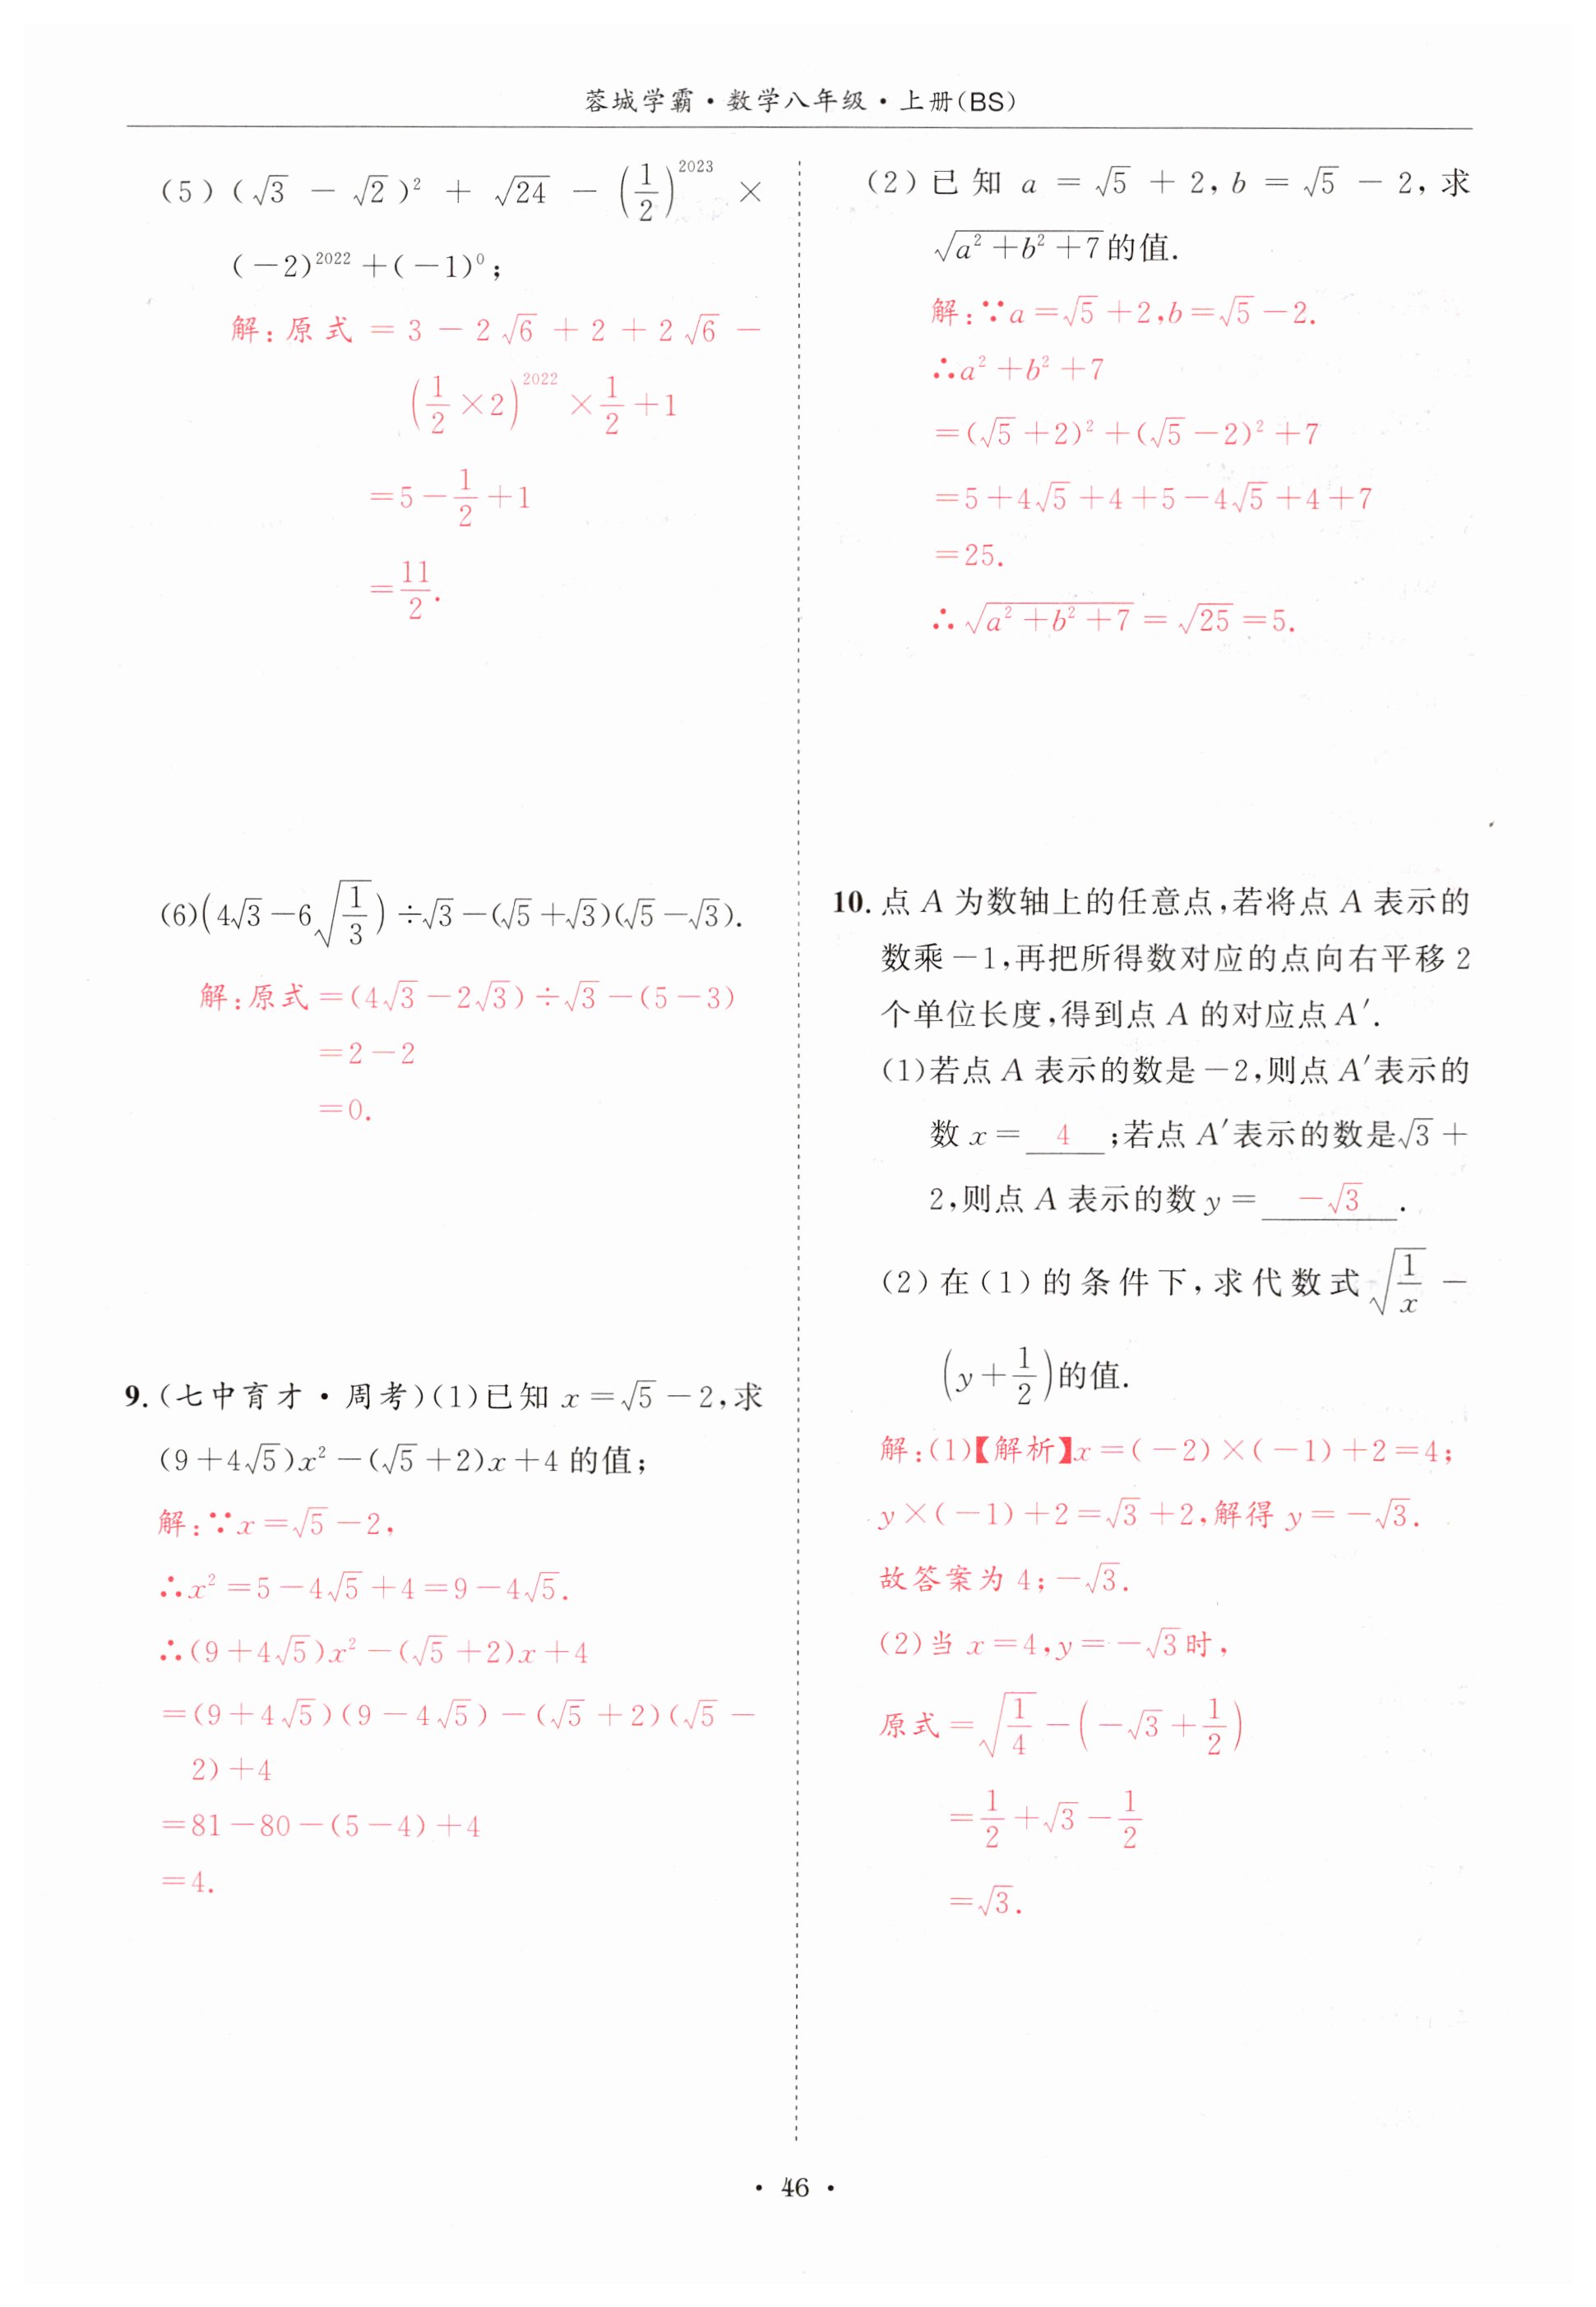 蓉城学霸·数学八年级·上册(BS)
(5)(√3 − √2)² + √24 − (1/2)²⁰²³ ×
(−2)²⁰²² + (−1)⁰;
解:原式 = 3 − 2√6 + 2 + 2√6 −
(1/2 × 2)²⁰²² × 1/2 + 1
= 5 − 1/2 + 1
= 11/2.
(6)(4√3 − 6√(1/3)) ÷ √3 − (√5 + √3)(√5 − √3).
解:原式 = (4√3 − 2√3) ÷ √3 − (5 − 3)
= 2 − 2
= 0.
9.(七中育才·周考)(1)已知 x = √5 − 2,求
(9 + 4√5)x² − (√5 + 2)x + 4 的值;
解:∵x = √5 − 2,
∴x² = 5 − 4√5 + 4 = 9 − 4√5.
∴(9 + 4√5)x² − (√5 + 2)x + 4
= (9 + 4√5)(9 − 4√5) − (√5 + 2)(√5 −
2) + 4
= 81 − 80 − (5 − 4) + 4
= 4.
(2)已知 a = √5 + 2, b = √5 − 2, 求
√(a² + b² + 7)的值.
解:∵a = √5 + 2,b = √5 − 2.
∴a² + b² + 7
= (√5 + 2)² + (√5 − 2)² + 7
= 5 + 4√5 + 4 + 5 − 4√5 + 4 + 7
= 25.
∴√(a² + b² + 7) = √25 = 5.
10. 点 A 为数轴上的任意点,若将点 A 表示的
数乘 −1,再把所得数对应的点向右平移 2
个单位长度,得到点 A 的对应点 A′.
(1)若点 A 表示的数是 −2,则点 A′表示的
数 x = 4 ;若点 A′表示的数是√3 +
2,则点 A 表示的数 y = −√3 .
(2)在(1)的条件下,求代数式 √(1/x) −
(y + 1/2)的值.
解:(1)【解析】x = (−2) × (−1) + 2 = 4;
y × (−1) + 2 = √3 + 2,解得 y = −√3.
故答案为 4; −√3.
(2)当 x = 4,y = −√3时,
原式 = √(1/4) − (−√3 + 1/2)
= 1/2 + √3 − 1/2
= √3.
· 46 ·